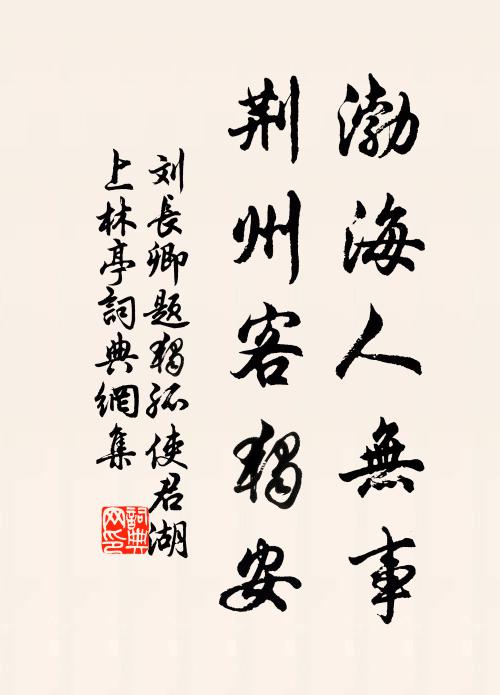 渤海人無事
荆州客獨安
刘長卿題獨孤使君湖
上林亭詞典網集
詞典
网印